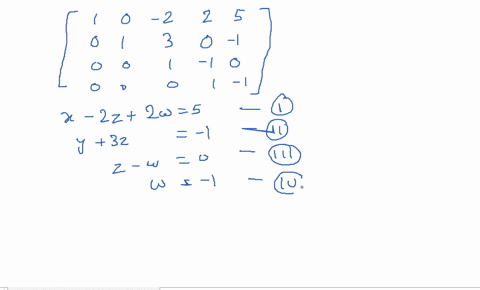 1 0 -2 2 5
0 1 3 0 -1
0 0 1 -1 0
0 0 0 1 -1
x - 2z + 2w = 5 — I
y + 3z = -1 — II
z - w = 0 — III
w = -1 — IV